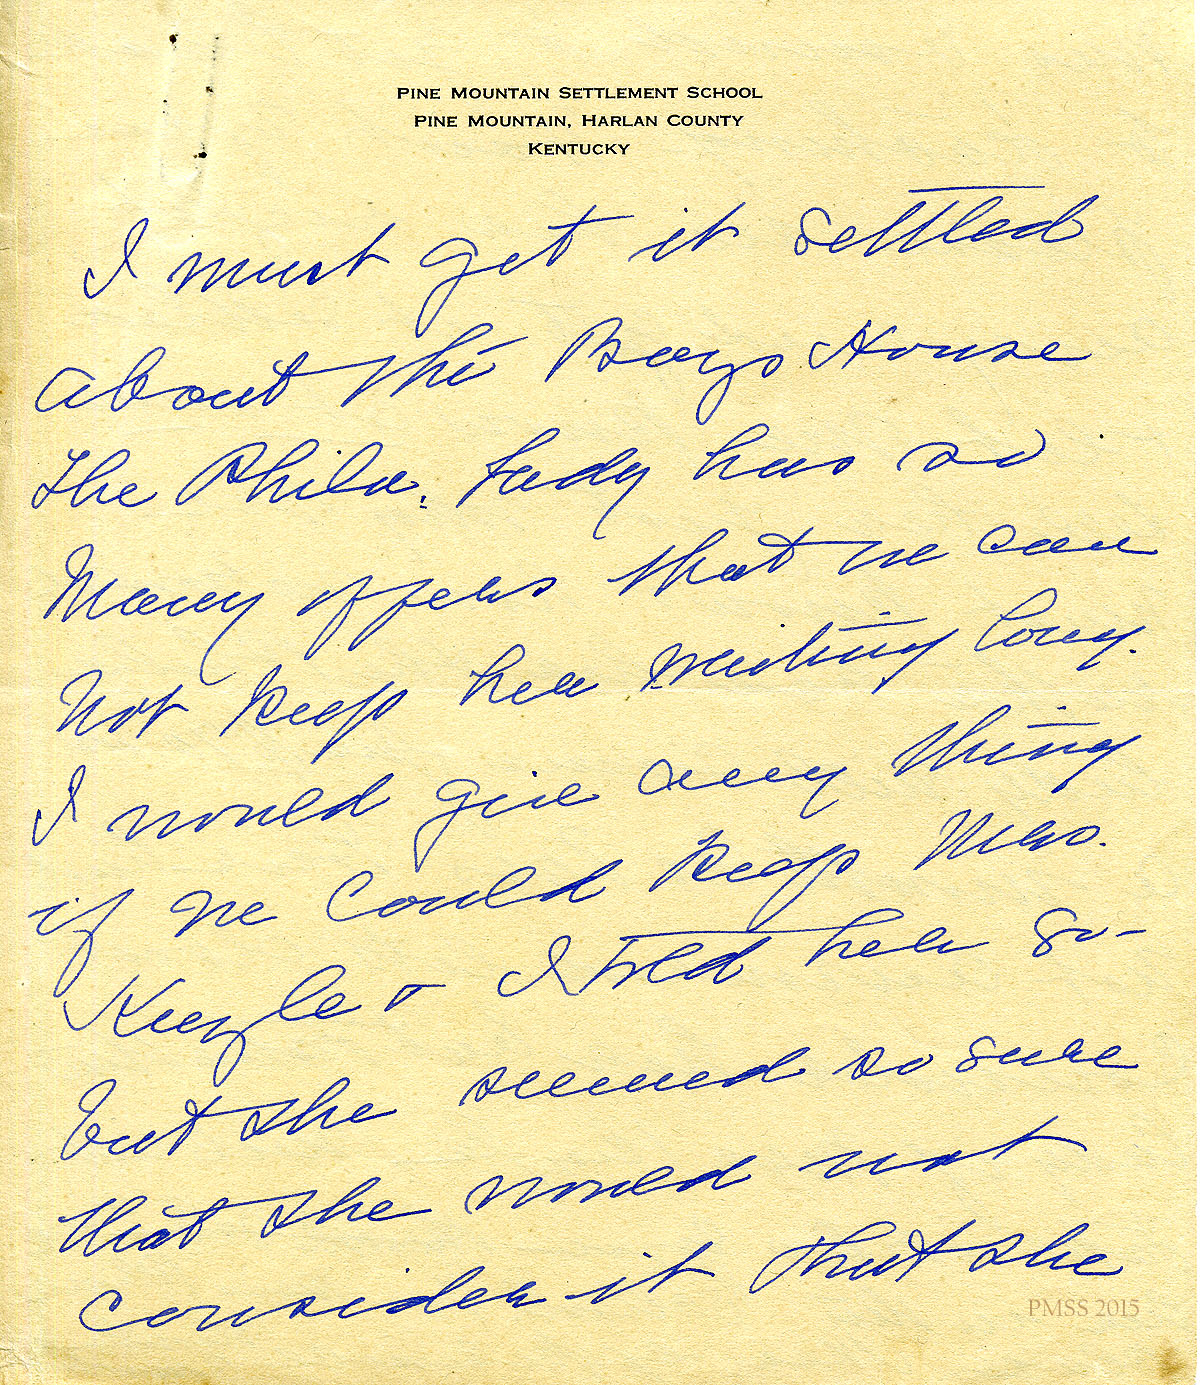 PINE MOUNTAIN SETTLEMENT SCHOOL
PINE MOUNTAIN, HARLAN COUNTY
KENTUCKY
I must get it settled
about the Boys House
The Phila. Lady has so
Many offers that we can
Not keep her waiting long.
I would give any thing
if we could keep Mrs.
but she seemed so sure
that she would not
consider it that she
PMSS 2015